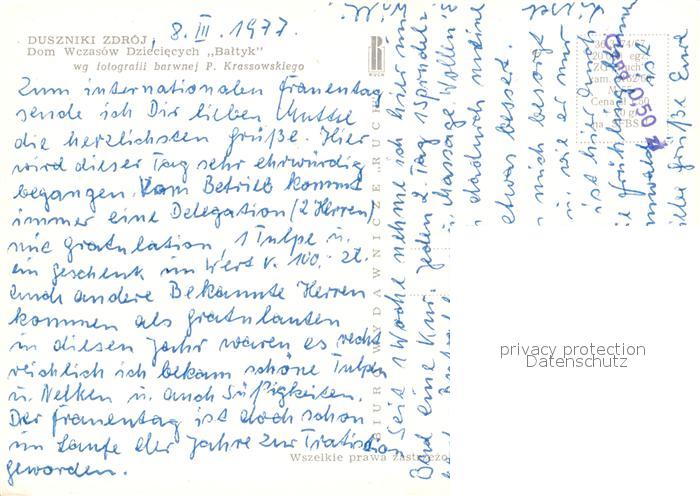 8. III. 1977.
DUSZNIKI ZDRÓJ
Dom Wczasów Dziecięcych „Bałtyk"
wg fotografii barwnej P. Krassowskiego
Zum internationalen Frauentag
sende ich Dir lieben Mutter
die herzlichsten Grüße. Hier
wird dieser Tag sehr ehrwürdig
begangen. Vom Betrieb kommt
immer eine Delegation (2 Herren)
mit Gratulation, 1 Tulpe u.
ein Geschenk im Wert v. 100,- zł.
auch andere Bekannte Herren
kommen als Gratulanten
in diesem Jahr waren es recht
reichlich ich bekam schöne Tulpen
u. Nelken u. auch Süßigkeiten.
Der Frauentag ist doch schon
im Laufe der Jahre zur Tratision
geworden.
Seit 1 Woche nehme ich hier im
Bad eine Kur. Jeden 2. Tag 1 Sprudel-
Massage. Wollen
dadurch meine
etwas besser.
mich besorgt
u. wie er nur
ist hier auch
Frühling
ist
Grüße Eure
RUCH
BIURO WYDAWNICZE RUCH
Wszelkie prawa zastrzeżo
privacy protection
Datenschutz